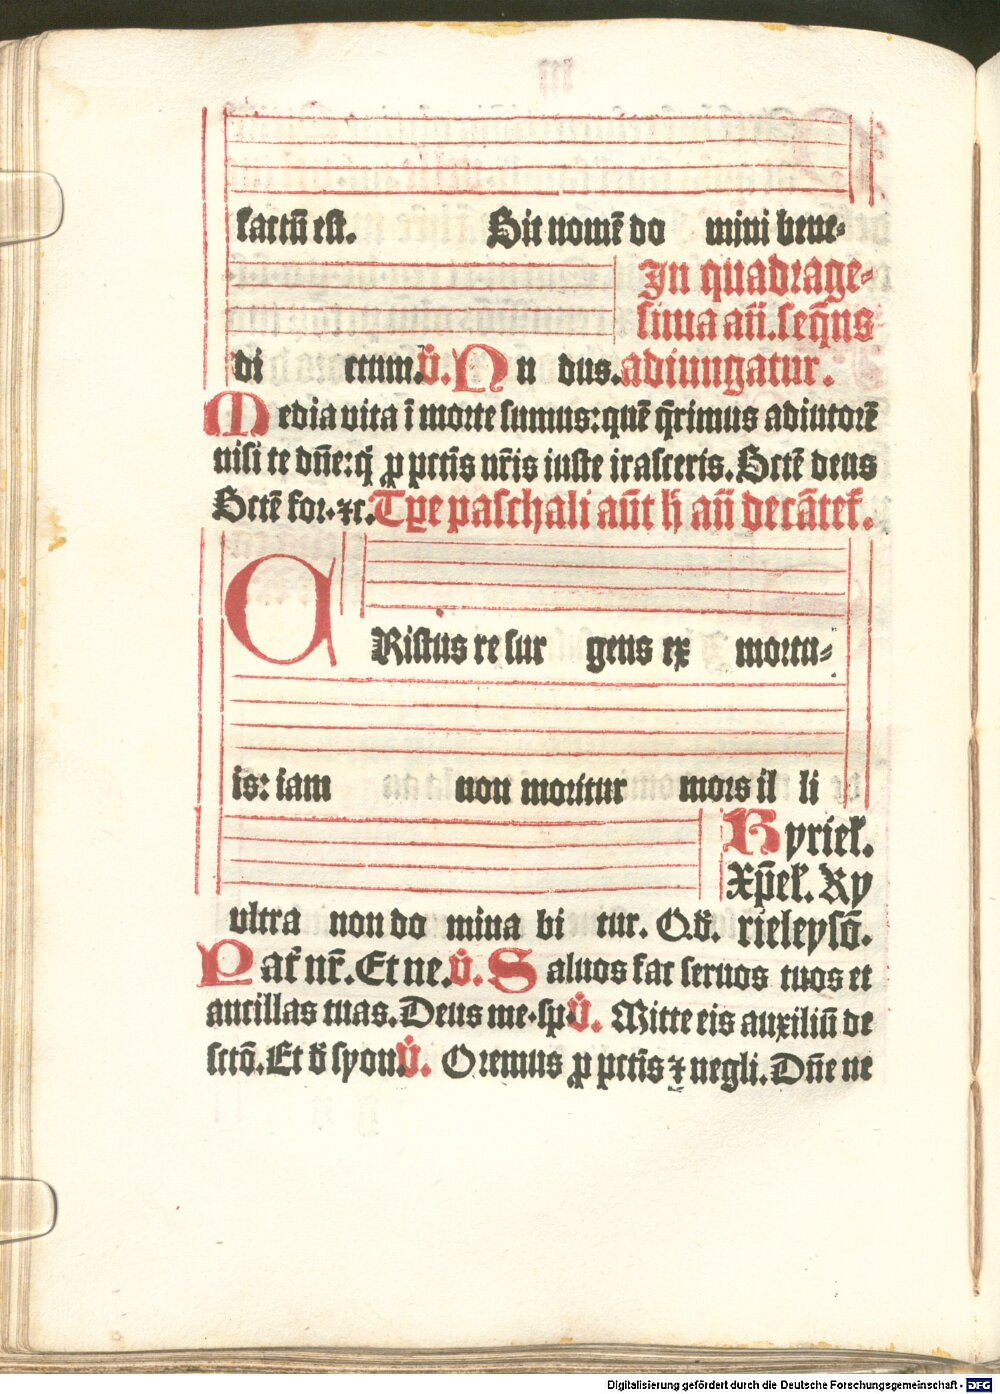 factū est. Sit nomē do mini bene⸗
In quadrage⸗
sima añ. seq̄ns
di ctum. V̊. Nu dus. adiungatur.
Media vita ī morte sumus: quē q̄rimus adiutorē
nisi te dn̄e: q̄ ꝓ pctīs nr̄is iuste irasceris. Sctē deus
Sctē for. ⁊c. Tp̄e paschali aūt h̄ añ decātet̄.
CRistus re sur gens ex mortu⸗
is: iam non moritur mors il li
Kyriel̄.
Xp̄el̄. Ky
ultra non do mina bi tur. O. V̊. rieleysō.
Pat̄ nr̄. Et ne. V̊. Saluos fac seruos tuos et
ancillas tuas. Deus me. sp. V̊. Mitte eis auxiliū de
sctō. Et d̄ syon. V̊. Oremus ꝓ pctīs ⁊ negli. Dn̄e ne
Digitalisierung gefördert durch die Deutsche Forschungsgemeinschaft - DFG